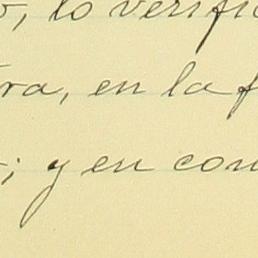 , lo verifi
ra, en la f
; y en con